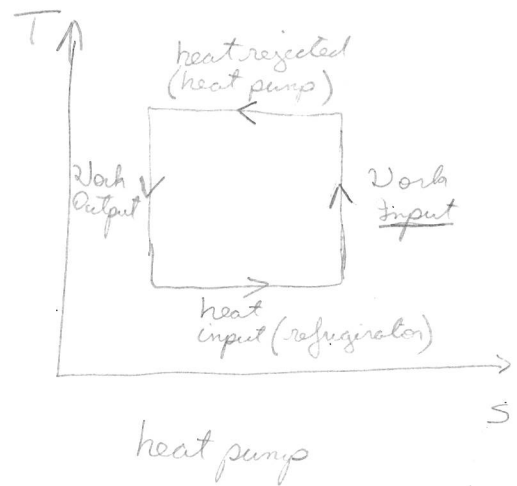 T
heat rejected
(heat pump)
Work
Output
Work
Input
heat
input (refrigirator)
S
heat pump